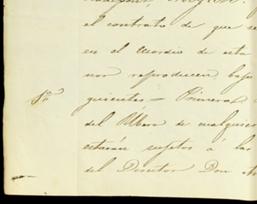 el contrato de que se
en el Mordio de esta
nor reproducen bajo
guientes.— Primera
1ª
del Albeo de cualquier
estarán sujetos á las
del Director Don